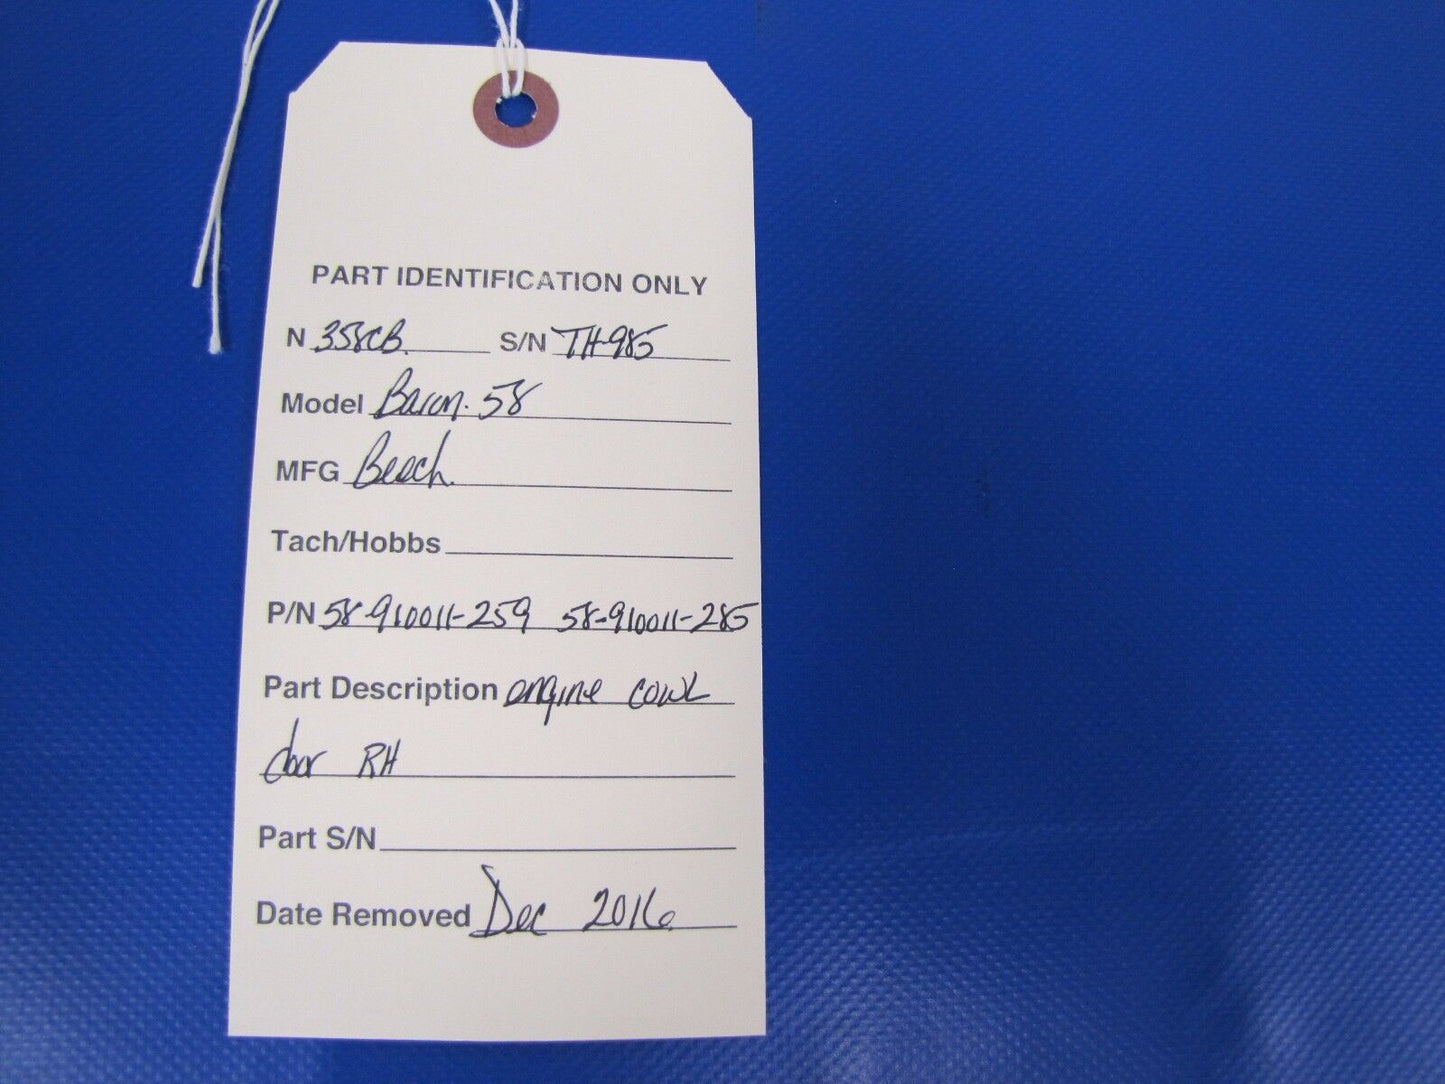 PART IDENTIFICATION ONLY
N 358CB. S/N TH-985
Model Baron. 58
MFG Beech.
Tach/Hobbs
P/N 58-910011-259 58-910011-285
Part Description engine cowl
door RH
Part S/N
Date Removed Dec 2016